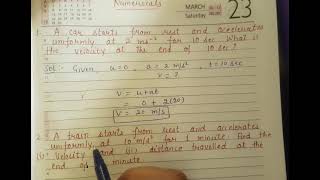 Numericals
MARCH
Saturday
23
1. A car starts from rest and accelerates
uniformly at 2 ms⁻² for 10 sec. What is
the velocity at the end of 10 sec?
Sol:- Given, u=0, a=2 m/s², t=10sec
v=?
V = u+at
= 0 + 2(10)
V = 20 m/s
2. A train starts from rest and accelerates
uniformly at 10 m/s² for 1 minute. Find the
(i) Velocity and (ii) distance travelled at the
end of minute